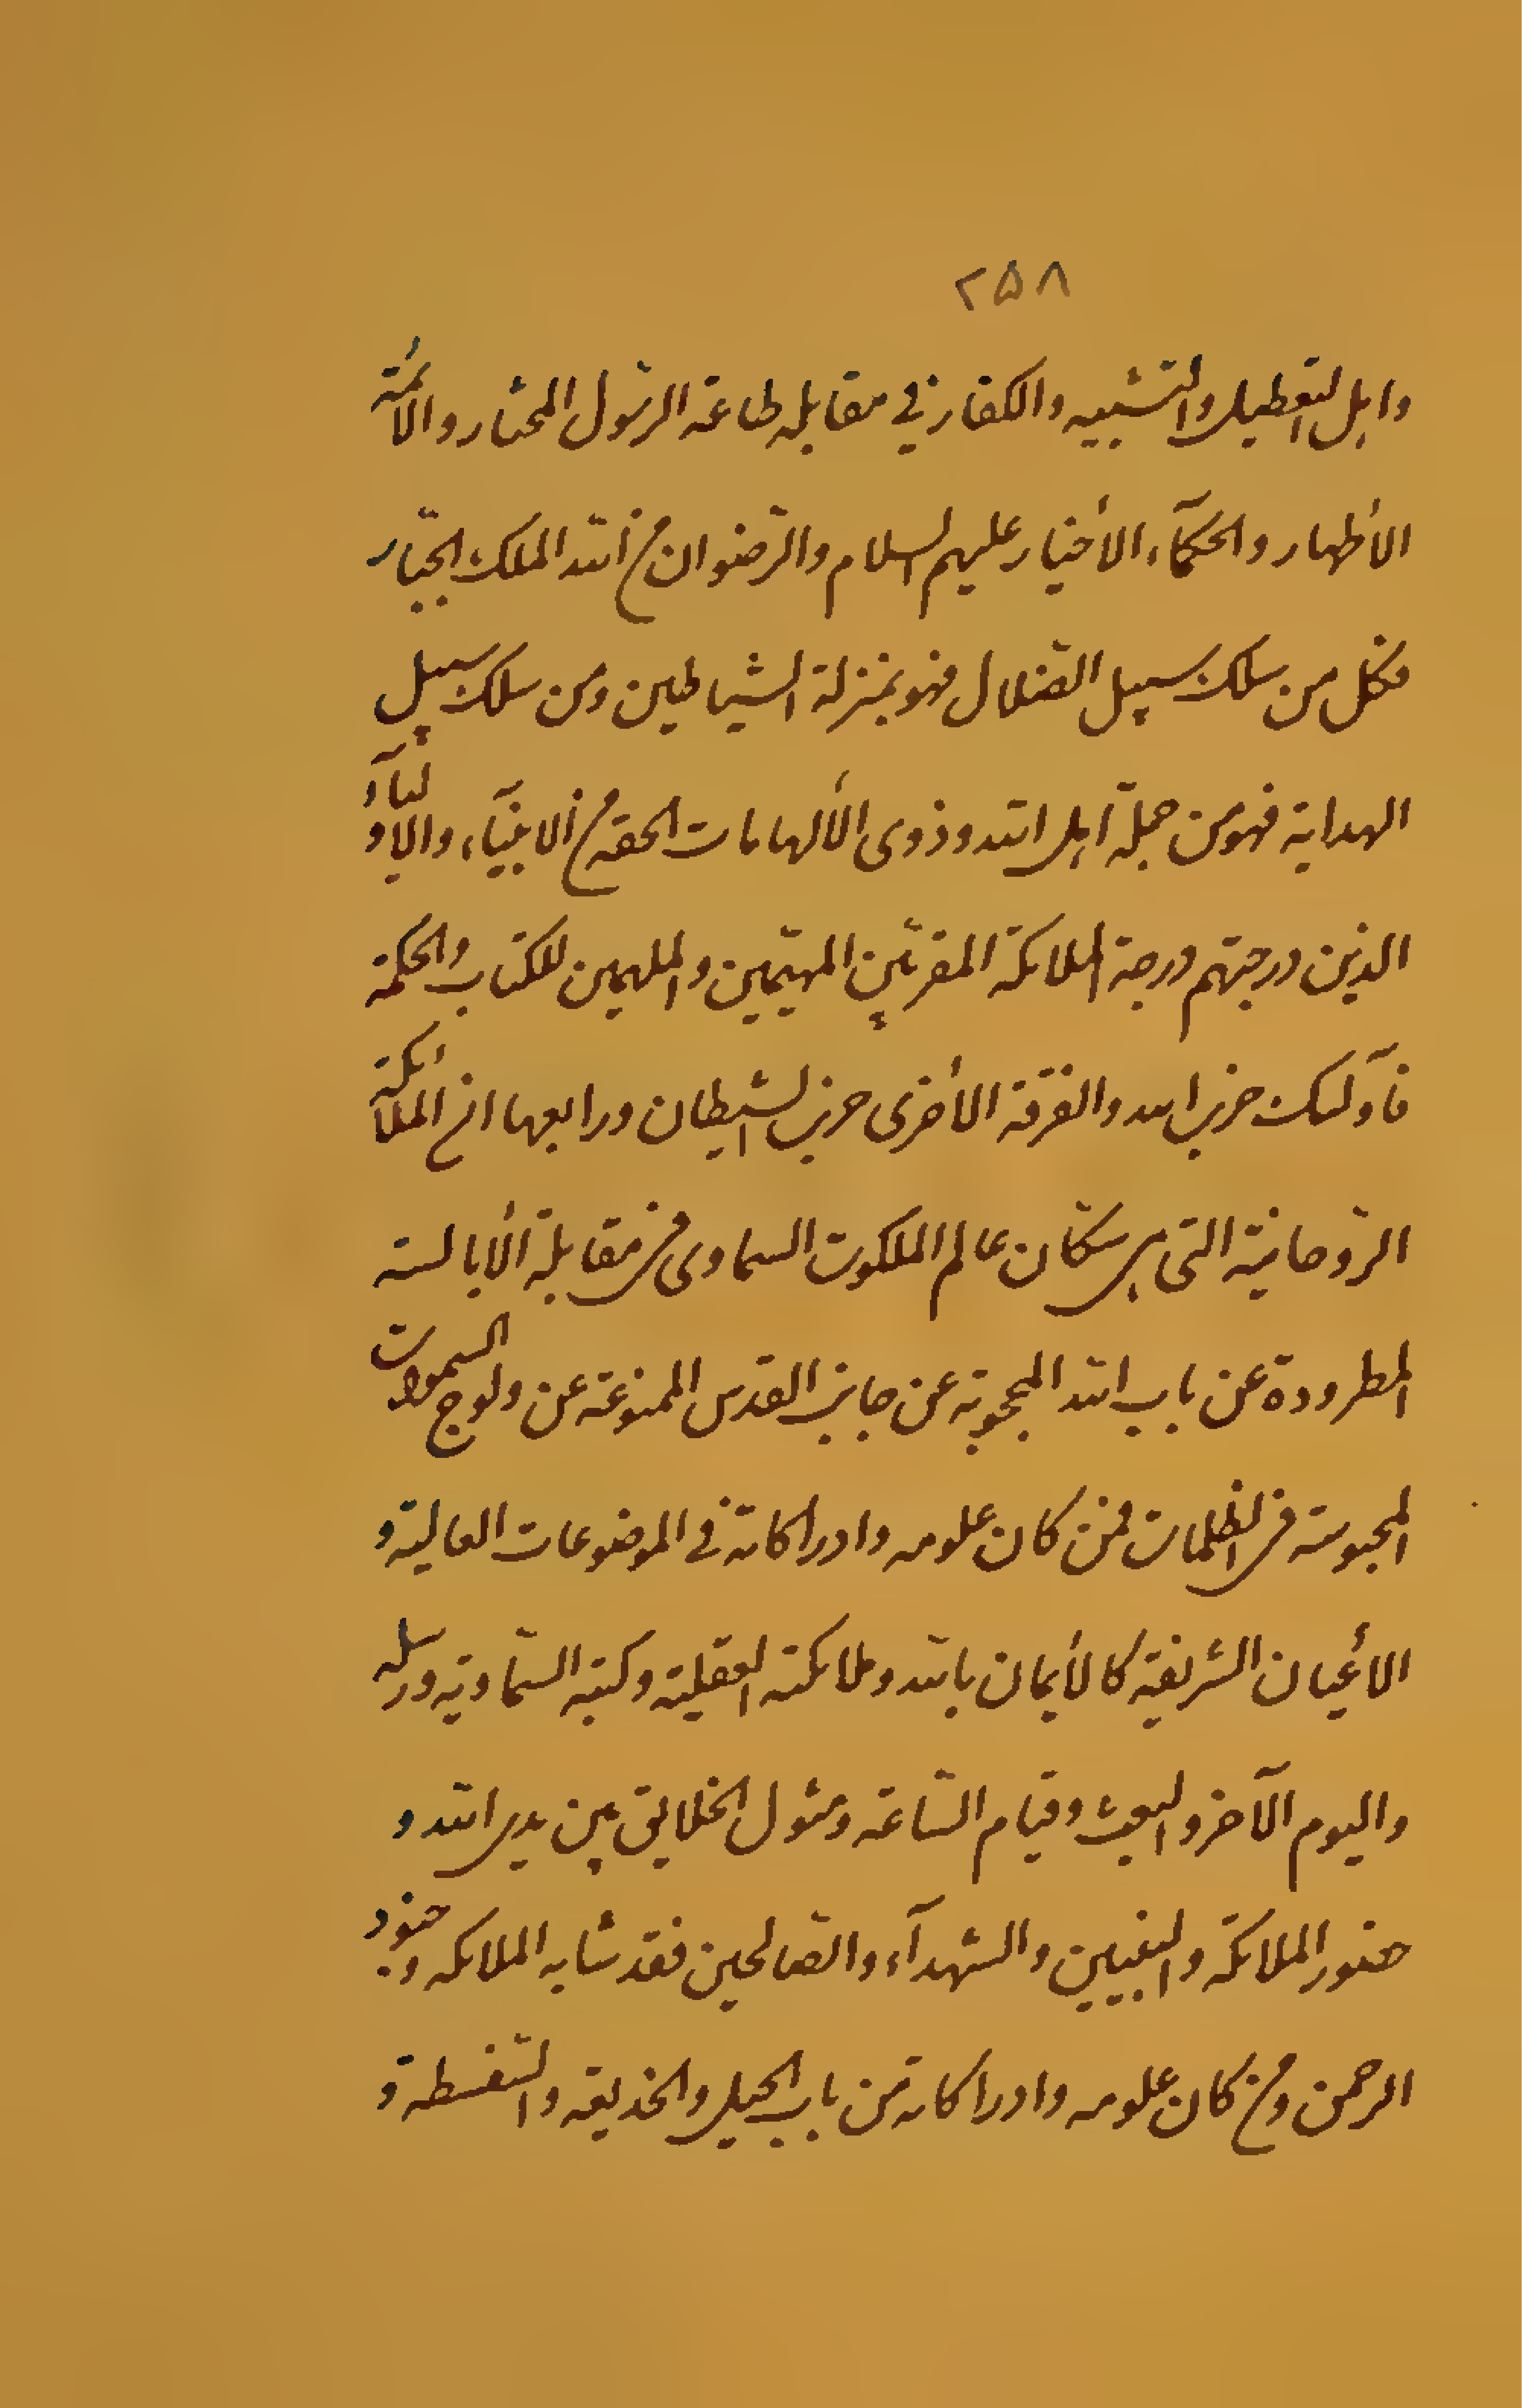 ٢۵٨
واهل التعطيل والتشبيه والكفار في مقابلة طاعة الرسول المختار والأئمة
الأطهار والحكمآء الأخيار عليهم السلام والرضوان من الله الملك الجبّار
فكل من سلك سبيل الضلال فهو بمنزلة الشياطين ومن سلك سبيل
الهداية فهو من جملة اهل الله وذوى الألهامات الحقه من الانبيآء والاوليآء
الذين درجتهم درجة الملائكة المقربين المهيّمين والملهمين للكتاب والحكمة
فآولئك حزب الله والفرقة الأخرى حزب الشيطان ورابعها ان الملائكة
الرّوحانية التى هى سكّان عالم الملكوت السماوى فى مقابلة الأبالسة
المطرودة عن باب الله المحجوبة عن جانب القدس الممنوعة عن ولوج السموات
المحبوسة فى الظلمات فمن كان علومه وادراكاته في الموضوعات العالية و
الأعيان الشريفة كالأيمان بالله وملائكته العقلية وكتبه السّماوية ورسله
واليوم الآخر والبعث وقيام السّاعة ومثول الخلايق بين يدى الله و
حضور الملائكة والنبيين والشهدآء والصّالحين فقد شابه الملائكه وجنود
الرحمن ومن كان علومه وادراكاته من باب الحيل والخديعه والسّفسطة و